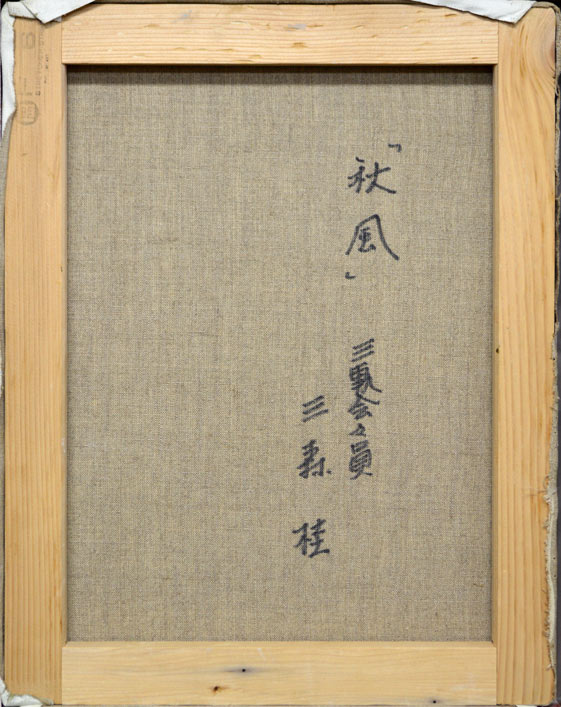 「秋風」
三軌会々員
三森 桂